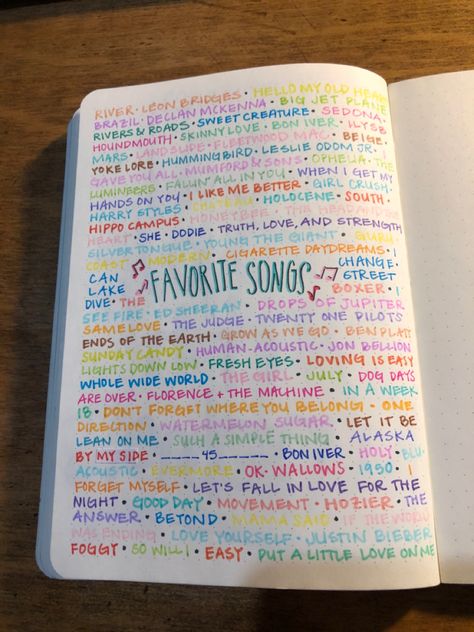 RIVER · LEON BRIDGES · HELLO MY OLD HEART
BRAZIL · DECLAN MCKENNA · BIG JET PLANE
RIVERS & ROADS · SWEET CREATURE · SEDONA ·
HOUNDMOUTH · SKINNY LOVE · BON IVER · ILYSB
MARS · LANDSLIDE · FLEETWOOD MAC · BEIGE ·
YOKE LORE · HUMMINGBIRD · LESLIE ODOM JR. · I
GAVE YOU ALL · MUMFORD & SONS · OPHELIA · THE
LUMINEERS · FALLIN' ALL IN YOU · WHEN I GET MY
HANDS ON YOU · I LIKE ME BETTER · GIRL CRUSH ·
HARRY STYLES · CHATEAU · HOLOCENE · SOUTH ·
HIPPO CAMPUS · HONEYBEE · THE HEAD AND THE
HEART · SHE · DODIE · TRUTH, LOVE, AND STRENGTH
SILVER TONGUE · YOUNG THE GIANT · GURU ·
COAST MODERN · CIGARETTE DAYDREAMS · I
CAN CHANGE ·
LAKE FAVORITE SONGS STREET
DIVE · THE BOXER · I
SEE FIRE · ED SHEERAN · DROPS OF JUPITER
SAME LOVE · THE JUDGE · TWENTY ONE PILOTS
ENDS OF THE EARTH · GROW AS WE GO · BEN PLATT
SUNDAY CANDY · HUMAN-ACOUSTIC · JON BELLION
LIGHTS DOWN LOW · FRESH EYES · LOVING IS EASY
WHOLE WIDE WORLD · THE GIRL · JULY · DOG DAYS
ARE OVER · FLORENCE + THE MACHINE · IN A WEEK
18 · DON'T FORGET WHERE YOU BELONG · ONE
DIRECTION · WATERMELON SUGAR · LET IT BE
LEAN ON ME · SUCH A SIMPLE THING · ALASKA
BY MY SIDE · _____45_____ · BON IVER · HOLY · BLU-
ACOUSTIC · EVERMORE · OK · WALLOWS · 1950 · I
FORGET MYSELF · LET'S FALL IN LOVE FOR THE
NIGHT · GOOD DAY · MOVEMENT · HOZIER · THE
ANSWER · BEYOND · MAMA SAID · IF THE WORLD
WAS ENDING · LOVE YOURSELF · JUSTIN BIEBER
FOGGY · SO WILL I · EASY · PUT A LITTLE LOVE ON ME